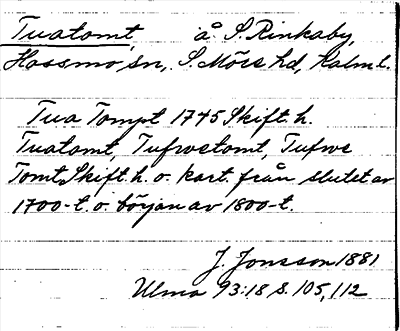 Tuatomt, å S. Rinkaby,
Hossmo sn, S. Möre hd, Kalm l.
Tua Tompt 1745 Skift. h.
Tuatomt, Tufvetomt, Tufwe
Tomt Skift. h. o. kart. från slutet av
1700-t. o. början av 1800-t.
J. Jonsson 1881
Ulma 93:18 s. 105, 112